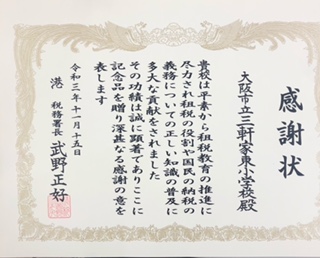 感謝状
大阪市立三軒家東小学校殿
貴校は平素から租税教育の推進に
尽力され租税の役割や国民の納税の
義務についての正しい知識の普及に
多大な貢献をされました
その功績は誠に顕著でありここに
記念品を贈り深甚なる感謝の意を
表します
令和三年十一月十五日
港 税務署長 武野正好